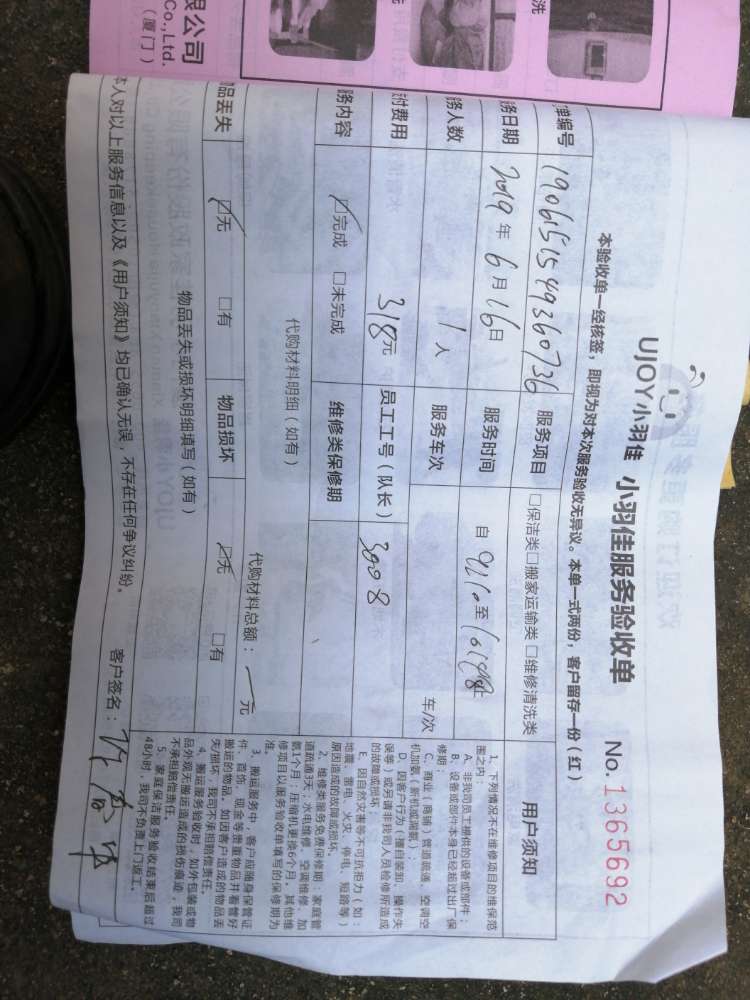 限公司
Co.,Ltd.
(厦门)
洗
UJOY小羽佳 小羽佳服务验收单 No.1365692
本验收单一经核签，即视为对本次服务验收无异议。本单一式两份，客户留存一份（红）
单编号 1906151549360736 服务项目 □保洁类□搬家运输类□维修清洗类
务日期 2019年6月16日 服务时间 自 至
务人数 1人 服务车次 车/次
付费用 318元 员工工号（队长） 3008
务内容 ☑完成 □未完成 维修类保修期
代购材料明细（如有） 代购材料总额： 元
品丢失 ☑无 □有 物品损坏 ☑无 □有
物品丢失或损坏明细填写（如有）
本人对以上服务信息以及《用户须知》均已确认无误，不存在任何争议纠纷。 客户签名：
用户须知
1、下列情况不在维修项目的维保范
围之内：
A、非我司员工提供的设备或部件；
B、设备或部件本身已经超过出厂保
修期；
C、商业（商铺）管道疏通、空调空
机加氨（新机或漏氨）；
D、因客户行为（擅自装卸、操作失
误等）或另请非我司人员检修所造成
的故障或损坏；
E、因自然灾害等不可抗拒力（如：
地震、雷电、火灾、停电、短路等）
原因造成的故障或损坏。
2、维修类服务免费保修期：家庭管
道疏通3天；水电维修、空调维修、加
氨1个月；压缩机更换6个月。其他维
修项目以服务验收单填写的保修期为
准。
3、搬运服务中，客户应随身保管证
件、首饰、现金等贵重物品并看管好
搬运的物品，如因客户造成的物品丢
失/损坏，我司不承担赔偿责任。
4、搬运服务验收时，如外包装或物
品外观无搬运造成的损伤痕迹，我司
不承担赔偿责任。
5、家庭保洁服务验收结束后超过
48小时，我司不负责上门返工。